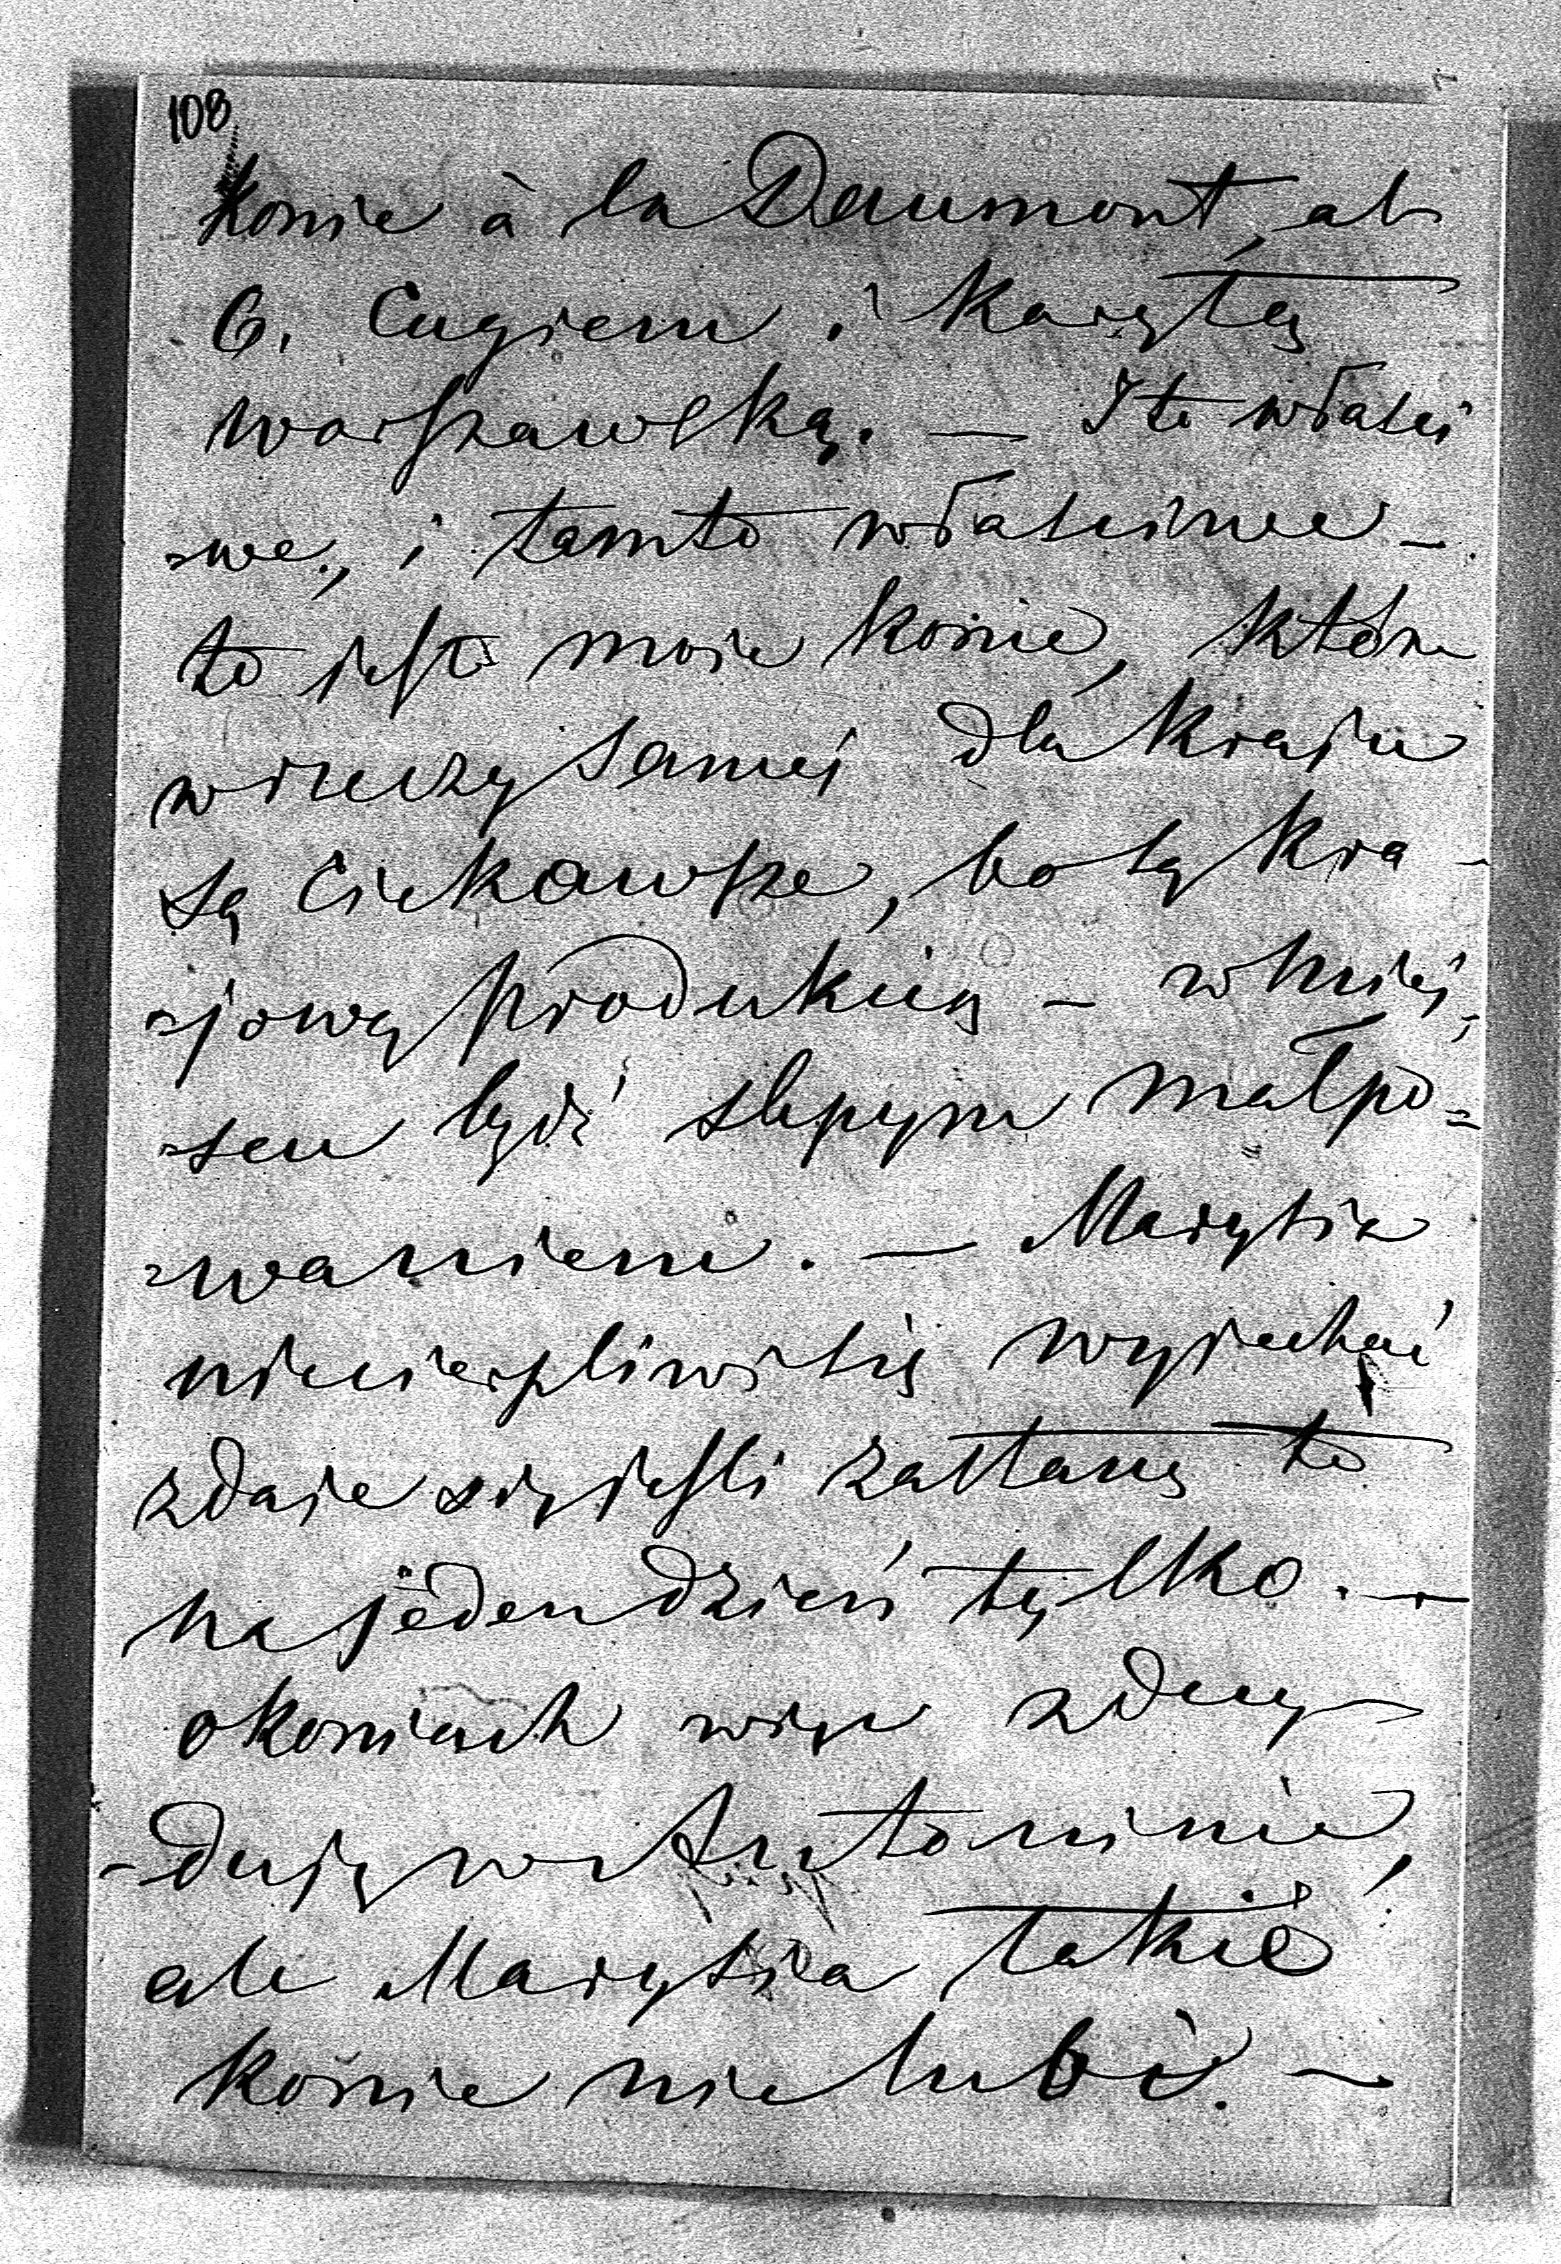 108
konie à la Daumont, al
6. Cugiem i karytę
warszawską. — I to właści
-we., i tamto właściwe —
to jest moje konie, które
w rzeczy samej dla kraju
są ciekawsze, bo są kra-
-jową produkcią — w
-sem bydź slepym małpo=
-waniem. — Marysia
niecierpliwi się wyjechać
zdaje się jeśli zastanę to
na jeden dzień tylko. —
o koniach więc zdecy-
-duję w Antoninie,
ale Marysia takie
konie nie lubi. —